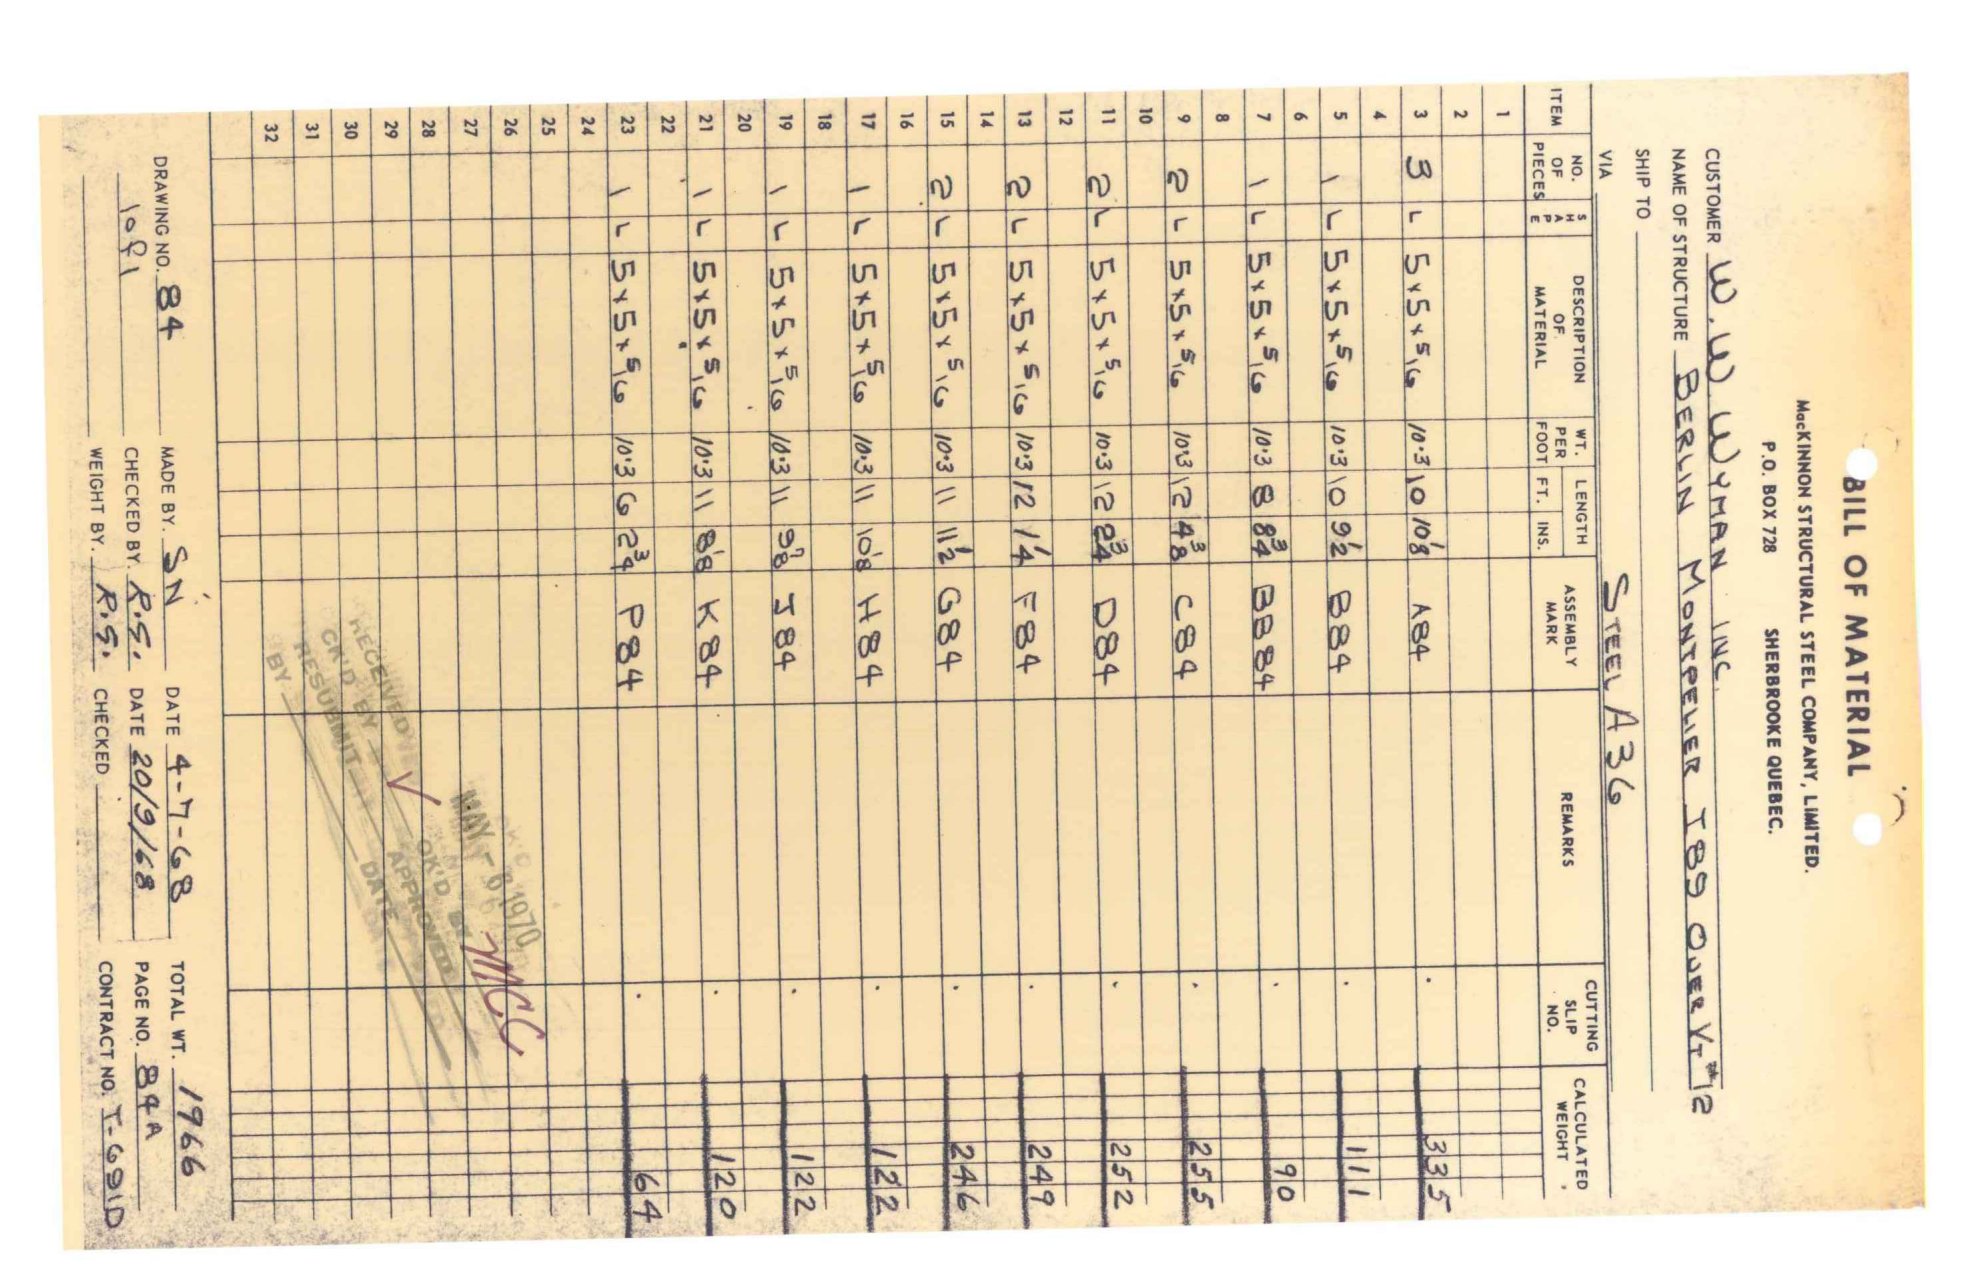 BILL OF MATERIAL
MacKINNON STRUCTURAL STEEL COMPANY, LIMITED.
P.O. BOX 728 SHERBROOKE QUEBEC.
CUSTOMER W. W. WYMAN INC.
NAME OF STRUCTURE BERLIN MONTPELIER I89 OVER VT #12
SHIP TO
VIA STEEL A36
ITEM NO. OF PIECES SHAPE DESCRIPTION OF MATERIAL WT. PER FOOT LENGTH FT. INS. ASSEMBLY MARK REMARKS CUTTING SLIP NO. CALCULATED WEIGHT
1
2
3 3 L 5x5x 5/16 10.3 10 10 1/8 A84 335
4
5 1 L 5x5x 5/16 10.3 10 9 1/2 B84 111
6
7 1 L 5x5x 5/16 10.3 8 8 3/4 BB84 90
8
9 2 L 5x5x 5/16 10.3 12 4 3/8 C84 255
10
11 2 L 5x5x 5/16 10.3 12 2 3/4 D84 252
12
13 2 L 5x5x 5/16 10.3 12 1 1/4 F84 249
14
15 2 L 5x5x 5/16 10.3 11 11 1/2 G84 246
16
17 1 L 5x5x 5/16 10.3 11 10 1/8 H84 122
18
19 1 L 5x5x 5/16 10.3 11 9 7/8 J84 122
20
21 1 L 5x5x 5/16 10.3 11 8 1/8 K84 120
22
23 1 L 5x5x 5/16 10.3 6 2 3/4 P84 64
24
25
26
27
28
29
30
31
32
MAY - 6 1970
RECEIVED
CK'D BY OK'D BY MCC
RESUBMIT APPROVED
BY DATE
DRAWING NO. 84 MADE BY. SN DATE 4-7-68 TOTAL WT. 1966
1 of 1 CHECKED BY. R.S. DATE 20/9/68 PAGE NO. 84A
WEIGHT BY. R.S. CHECKED CONTRACT NO. T-691D